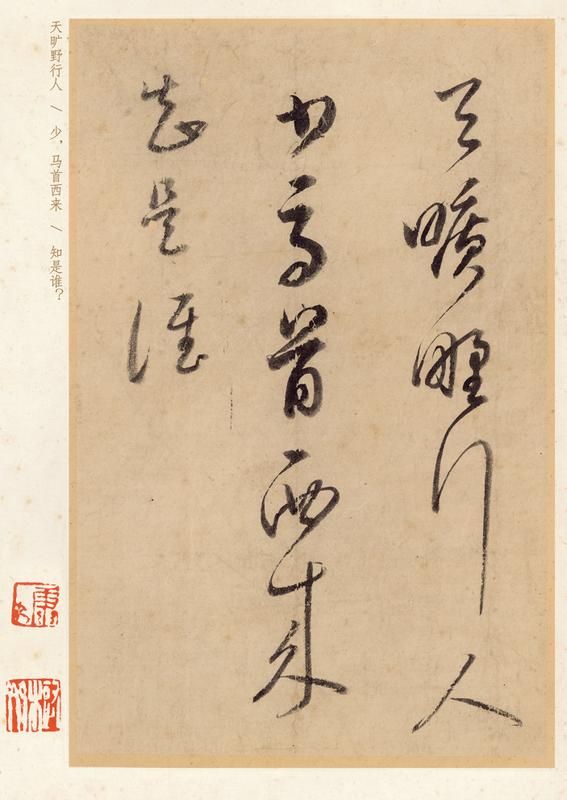 天曠野行人
少馬首西来
知是誰
天旷野行人 \ 少，马首西来 \ 知是谁？